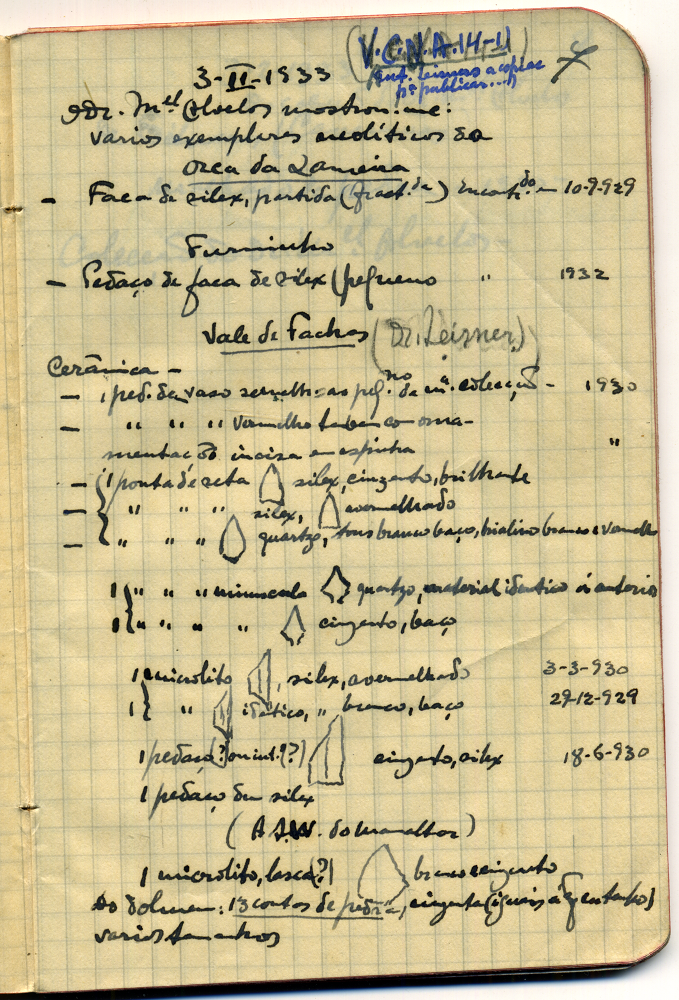 V.C.N.A. 14-11
3-II-1933
Dr. M.el mostrou-me:
varios exemplares neolíticos da
Orca da Lameira
- Faca de silex, partida (fract.da) encont.do em 10-9-929
Furninho
- Pedaço de faca de silex (pequeno " 1932
Vale de Fachas (Dr. Leisner)
Cerâmica -
- 1 ped. de vaso semelh. ao peq.no da m.a colecção - 1930
- " " " vermelho tambem com orna-
mentação incisa em espinha "
- 1 ponta de seta silex, cinzento, brilhante
- " " " silex, avermelhado
- " " " quartzo, tons branco baço, hialino branco e vermelho
1 " " " minuscula quartzo, material identico ó anterior
1 " " " " cinzento, baço
1 microlito, silex, avermelhado 3-3-930
1 " identico, " branco, baço 29-12-929
1 pedaço(?) ou int.(?) cinzento, silex 18-6-930
1 pedaço de silex
(A S.W. do mamelhor)
1 microlito, lasca(?) branco cinzento
Do dolmen: 13 contas de pedra, cinzenta (iguais
varios tamanhos